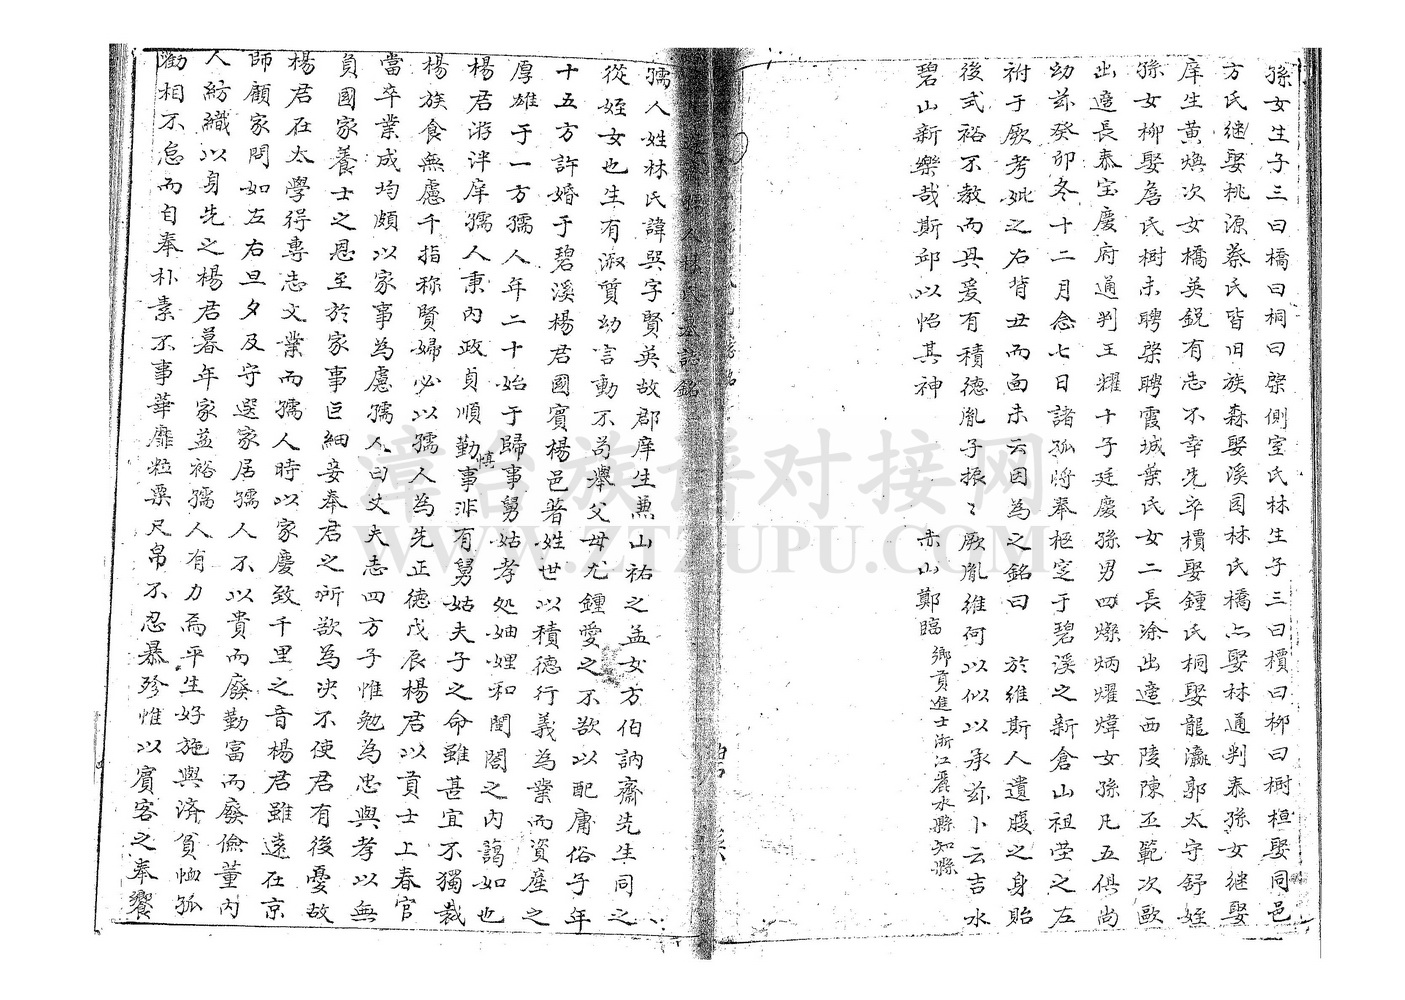 孫女生子三曰橋曰桐曰棨側室氏林生子三曰檟曰柳曰樹桓娶同邑
方氏継娶桃源蔡氏皆旧族森娶溪园林氏橋亦娶林通判泰孫女継娶
庠生黄煥次女橋英鋭有志不幸先卒檟娶鍾氏桐娶龍瀛郭太守舒姪
孫女柳娶詹氏樹未聘棨聘霞城葉氏女二長涂出適西陵陳丕範次歐
出適長泰宝慶府通判王耀十子廷慶孫男四燦炳燿煒女孫凡五俱尚
幼茲癸卯冬十二月念七日諸孤将奉柩窆于碧溪之新倉山祖塋之左
祔于厥考妣之右背丑而面未云因為之銘曰 於維斯人遺腹之身貽
後式裕不教而興爰有積德胤子振〻厥胤維何以似以承茲卜云吉水
碧山新樂哉斯邱以怡其神
赤山鄭臨 鄉貢進士浙江麗水縣知縣
孺人林氏墓誌銘
孺人姓林氏諱巽字賢英故郡庠生兼山祐之孟女方伯訥齋先生同之
從姪女也生有淑質幼言動不苟舉父母尤鍾愛之不欲以配庸俗子年
十五方許婚于碧溪楊君國賓楊邑著姓世以積德行義為業而資産之
厚雄于一方孺人年二十始于歸事舅姑孝処妯娌和閨閤之内藹如也
楊君游泮庠孺人秉内政貞順勤慎事非有舅姑夫子之命雖甚宜不獨裁
楊族食無慮千指称賢婦必以孺人為先正德戊辰楊君以貢士上春官
當卒業成均頗以家事為慮孺人曰丈夫志四方子惟勉為忠與孝以無
負國家養士之恩至於家事巨細妾奉君之所欲為决不使君有後憂故
楊君在太學得專志文業而孺人時以家慶致千里之音楊君雖遠在京
師顧家問如左右旦夕及守選家居孺人不以貴而廢勤富而廢儉董内
人紡織以身先之楊君暮年家益裕孺人有力焉平生好施與済貧恤孤
勸相不怠而自奉朴素不事華靡粒粟尺帛不忍暴殄惟以賓客之奉饗
碧溪
漳台族谱对接网
WWW.ZTZUPU.COM